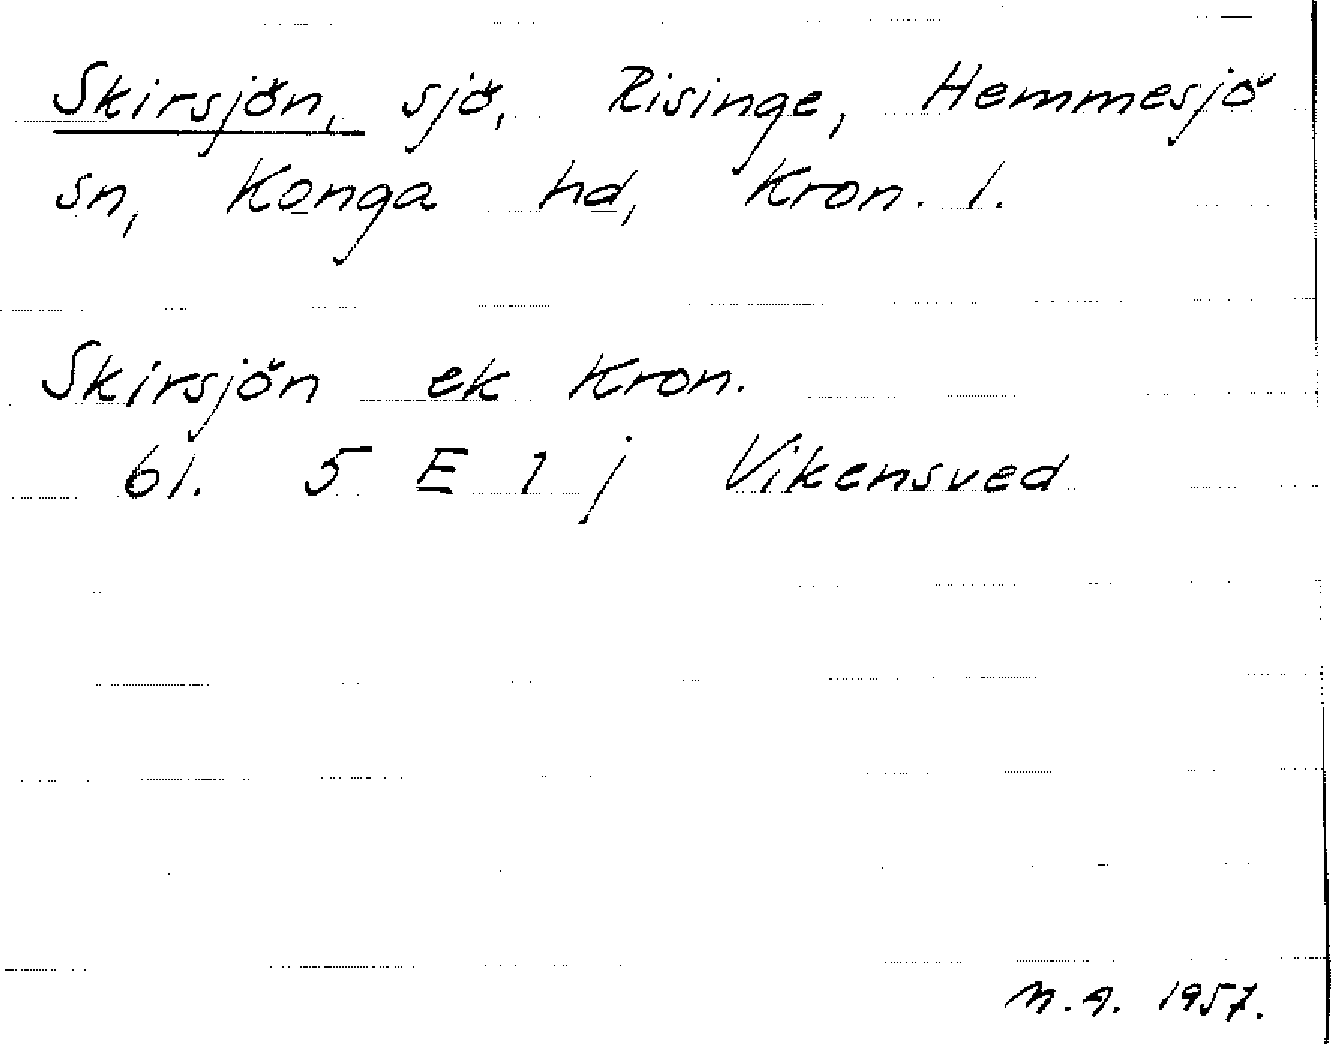 Skirsjön, sjö, Risinge, Hemmesjö
sn, Konga hd, Kron. l.
Skirsjön ek Kron.
bl. 5 E 1 j Vikensved
M.A. 1957.